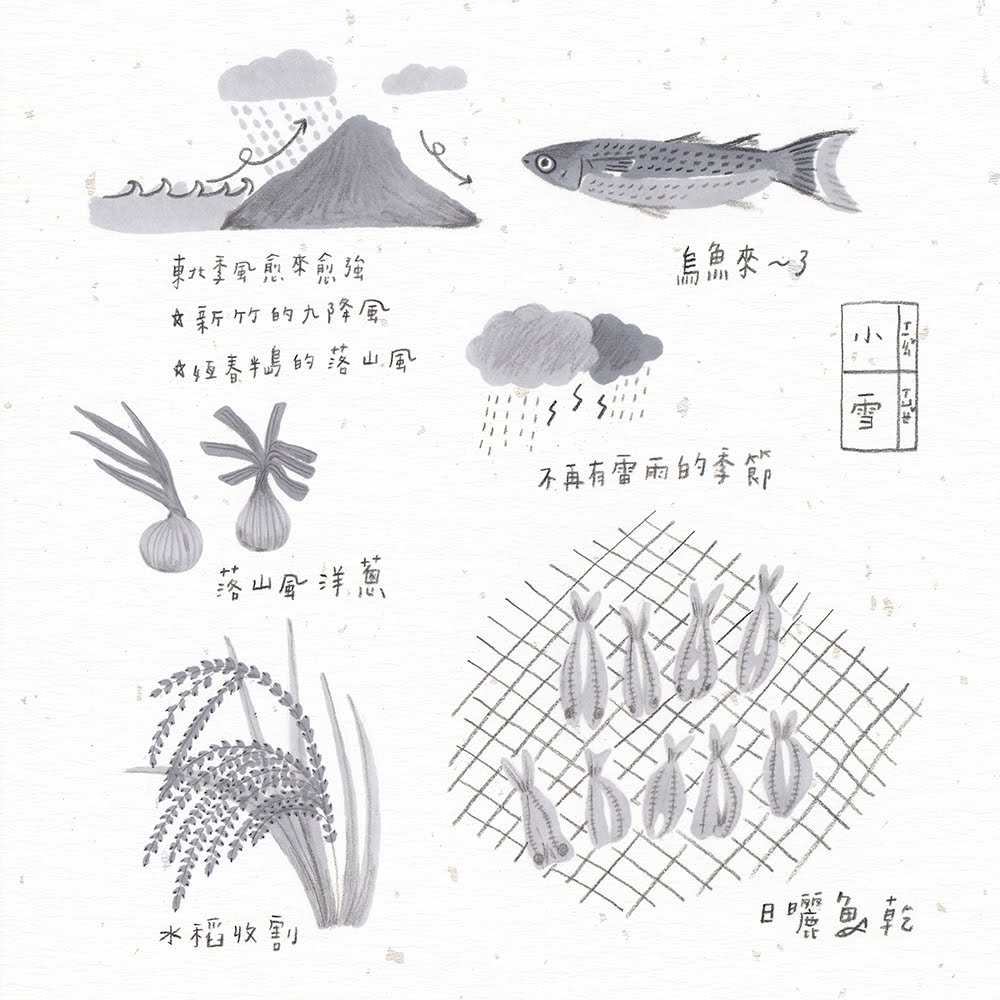 東北季風愈來愈強
☆新竹的九降風
☆恆春半島的落山風
烏魚來~了
小 ㄒㄧㄠˇ
雪 ㄒㄩㄝˇ
不再有雷雨的季節
落山風洋蔥
水稻收割
日曬魚乾